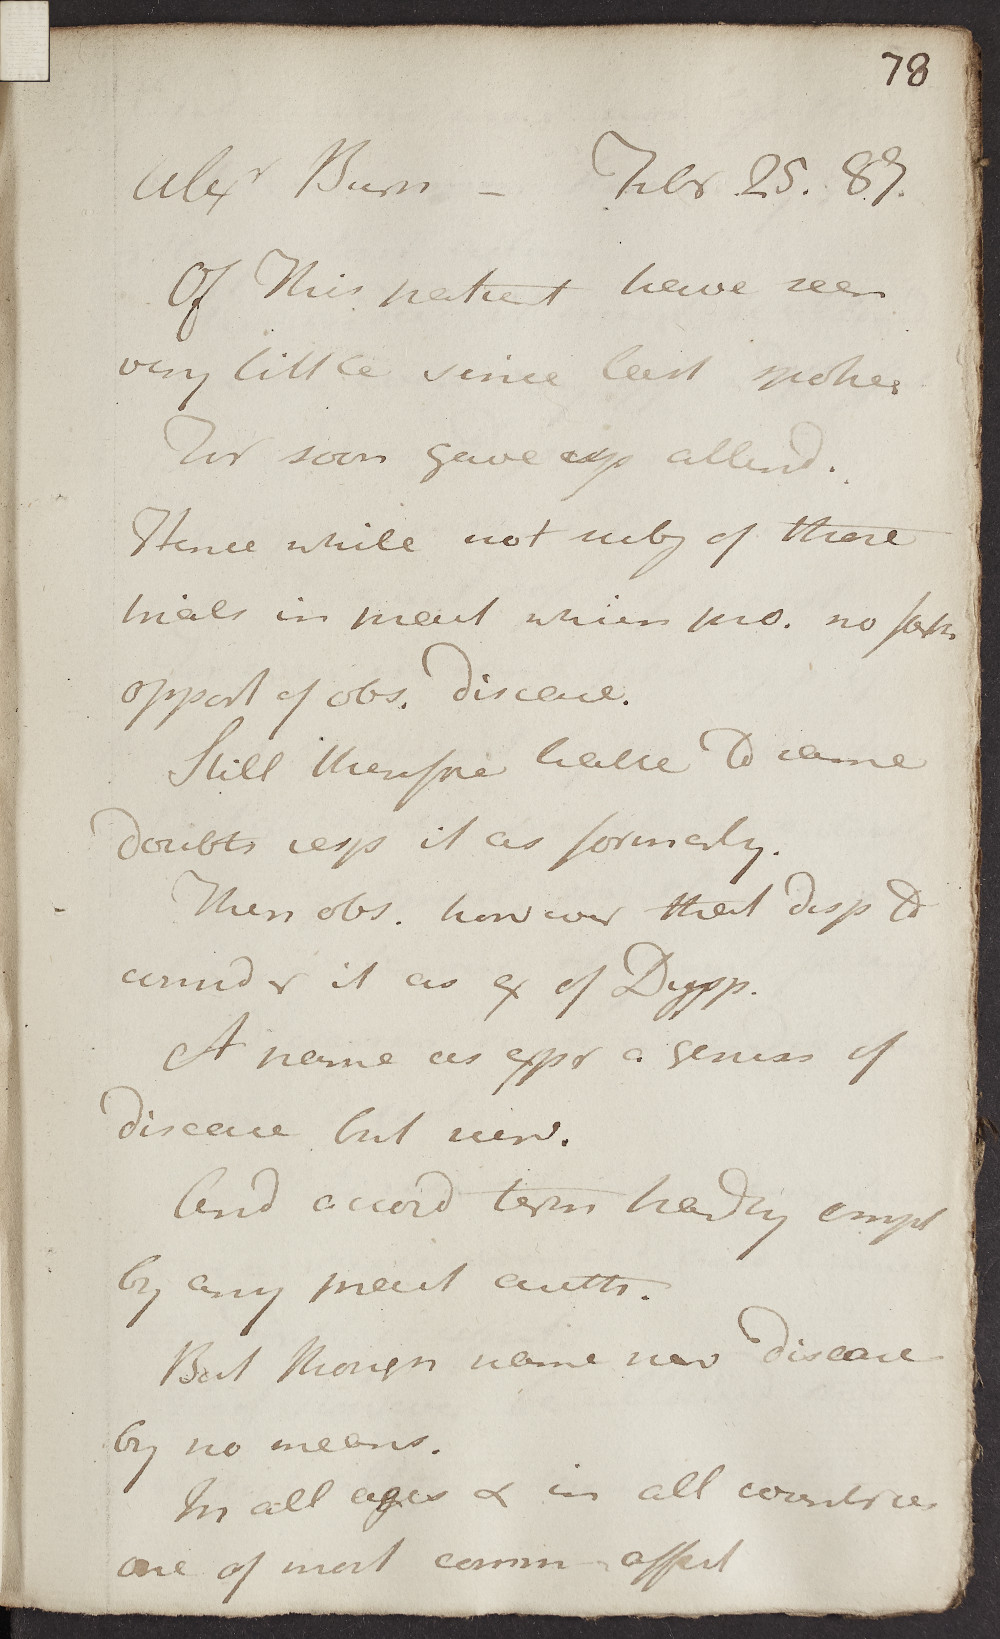 78
Alexr Burn - Febr 25. 87.
Of This patient have seen
very little since last spoke.
For soon gave up attend.
Hence while not subj of those
trials in pract when pro. no
opport of obs. disease.
Still therefore liable to same
doubts resp it as formerly.
Then obs. however that disp to
consider it as ex of Dysp.
A name as expr a genus of
disease but new.
And accord term hardly empl
by any pract auth.
But though name new disease
by no means.
In all ages & in all countries
one of most comm affect